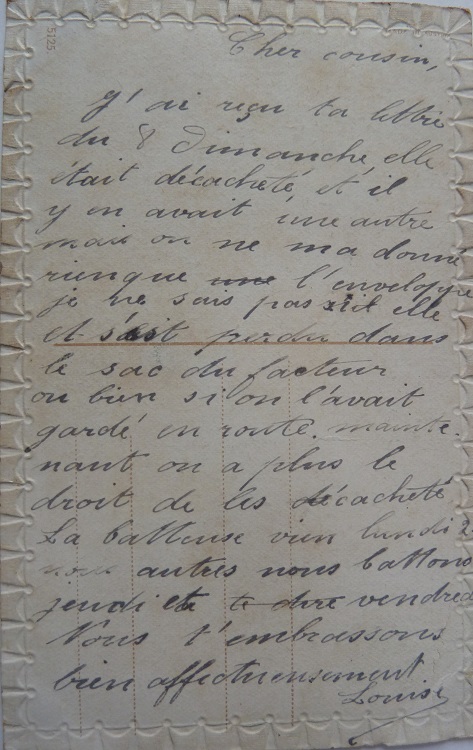 5125.
Cher cousin,
J'ai reçu ta lettre
du 8 Dimanche, elle
était décacheté, et il
y en avait une autre
mais on ne ma donné
rienque une l'enveloppe
je ne sais pas elle
et s'est perdu dans
le sac du facteur
ou bien si on l'avait
gardé en route. mainte-
nant on a plus le
droit de les décacheté
La batteuse vien lundi
nous autres nous battons
jeudi et vendredi
Nous t'embrassons
bien affectueusement
Louise